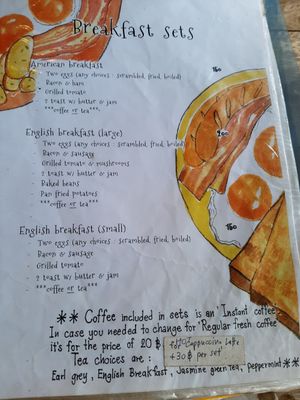 Breakfast sets
American breakfast 160
Two eggs (any choices : scrambled, fried, boiled)
Bacon & ham
Grilled tomato
2 toast w/ butter & jam
***coffee or tea***
English breakfast (large) 200
Two eggs (any choices : scrambled, fried, boiled)
Bacon & sausage
Grilled tomato & mushrooms
2 toast w/ butter & jam
Baked beans
Pan fried potatoes
***coffee or tea***
English breakfast (small) 160
Two eggs (any choices : scrambled, fried, boiled)
Bacon & sausage
Grilled tomato
2 toast w/ butter & jam
***coffee or tea***
** Coffee included in sets is an "Instant coffee"
In case you needed to change for "Regular fresh coffee"
it's for the price of 20 ฿
Cappuccino Latte
+30 ฿ per set
Tea choices are :
Earl grey, English Breakfast, Jasmine green tea, peppermint **